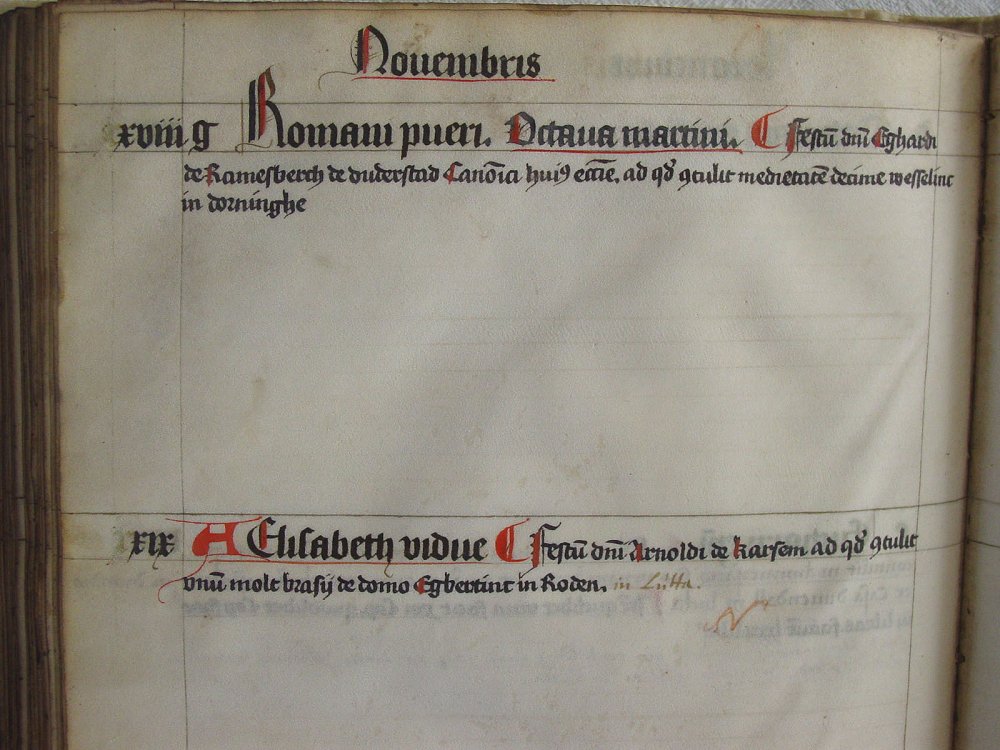 Nouembris
xviii g Romani pueri. Octaua martini. Festū dnī Eghardi
de Ramesberch de duderstad Canōici huiꝰ eccīe. ad qd̄ ꝯtulit medietatē decime wesselinc
in dorninghe
xix A Elisabeth vidue Festū dnī Arnoldi de karssem ad qd̄ ꝯtulit
vnū molt brasij de domo Egbertinc in Roden. in Lutta